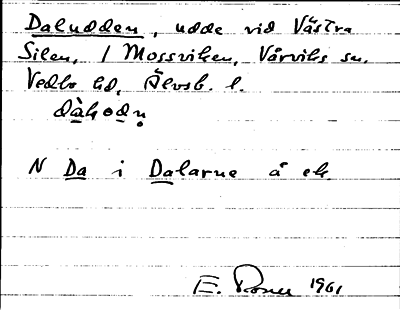 Daludden, udde vid Västra
Silen, / Mossviken, Vårviks sn.
Vedbo hd, Älvsb. l.
N Da i Dalarne å ek.
E. 1961